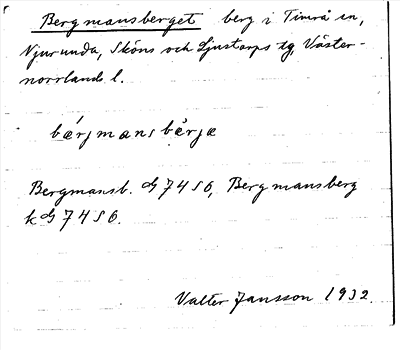 Bergmansberget berg i Timrå sn,
Njurunda, Sköns och Ljustorps tg, Väster-
norrlands l.
bærjmansbærjæ
Bergmansb. G 7450, Bergmansberg
k G 7450.
Valter Jansson 1932.